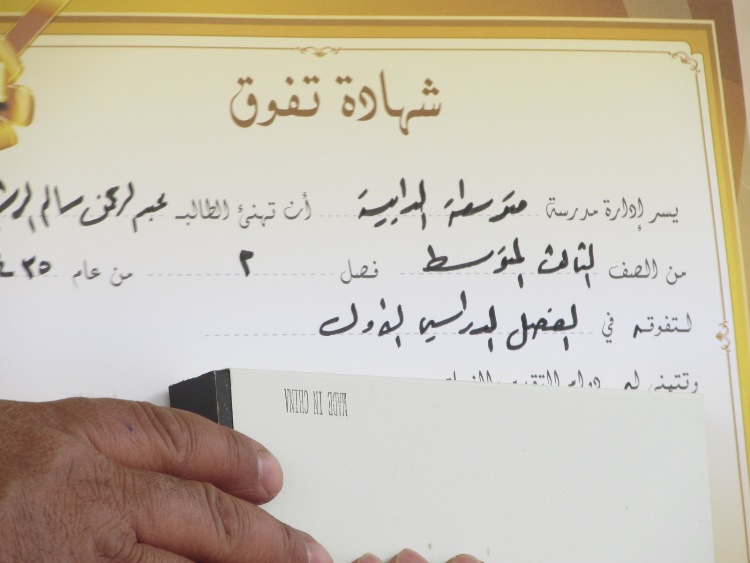 شهادة تفوق
يسر إدارة مدرسة متوسطة الدابية أن تهنئ الطالب عبدالرحمن سالم
من الصف الثالث المتوسط فصل ٢ من عام ٣٥
لتفوقه في الفصل الدراسي الأول
وتتمنى له دوام التقدم
MADE IN CHINA